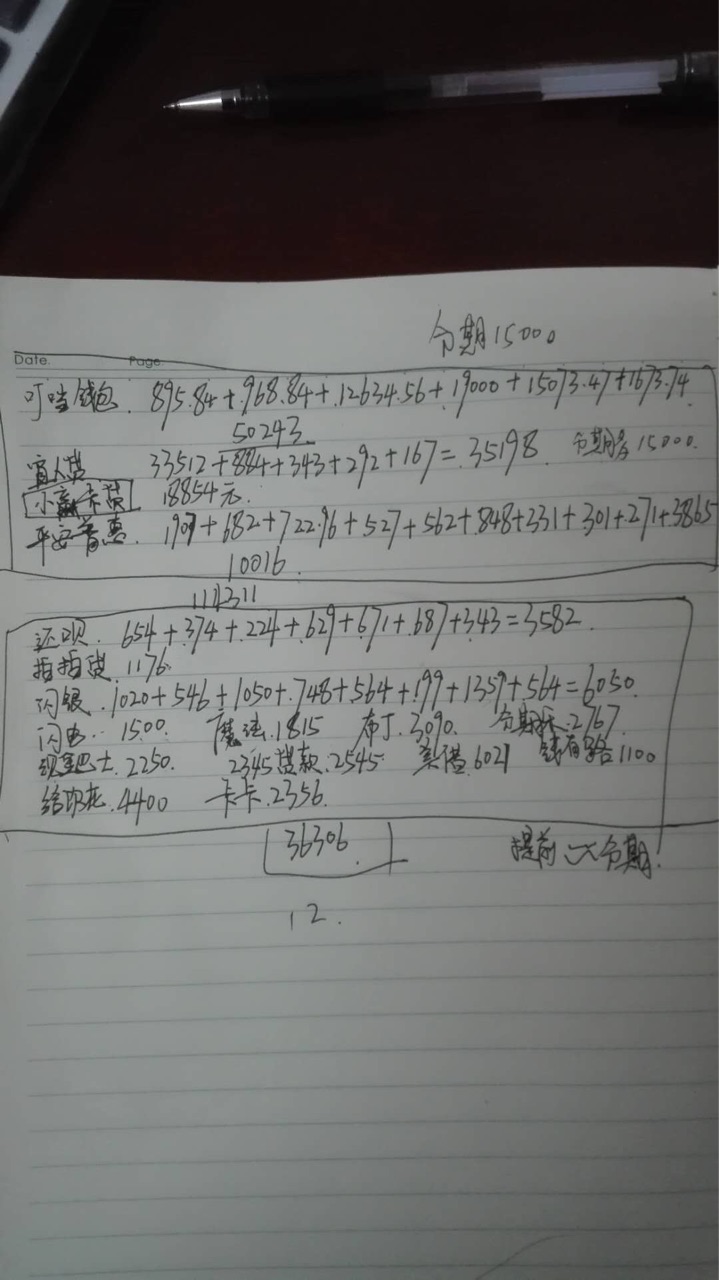 分期15000
Date. Page.
叮哇钱包. 895.84+968.84+12634.56+19000+15073.47+1673.74
50243
宜人贷 33512+884+343+292+167=35198. 分期 15000.
小赢卡贷 18854元.
平安普惠. 1909+682+722.96+527+562+848+331+301+271+3865
10016.
114311
还呗. 654+374+224+629+671+687+343=3582.
拍拍贷. 1176.
闪银. 1020+546+1050+748+564+199+1359+564=6050.
闪电.. 1500. 魔法.1815 布丁.3090. 分期 .2767.
现金巴士.2250. 2345贷款.2545. 6021 钱有路1100
给你花.4400 卡卡.2356.
36306.
提前 分期.
12.